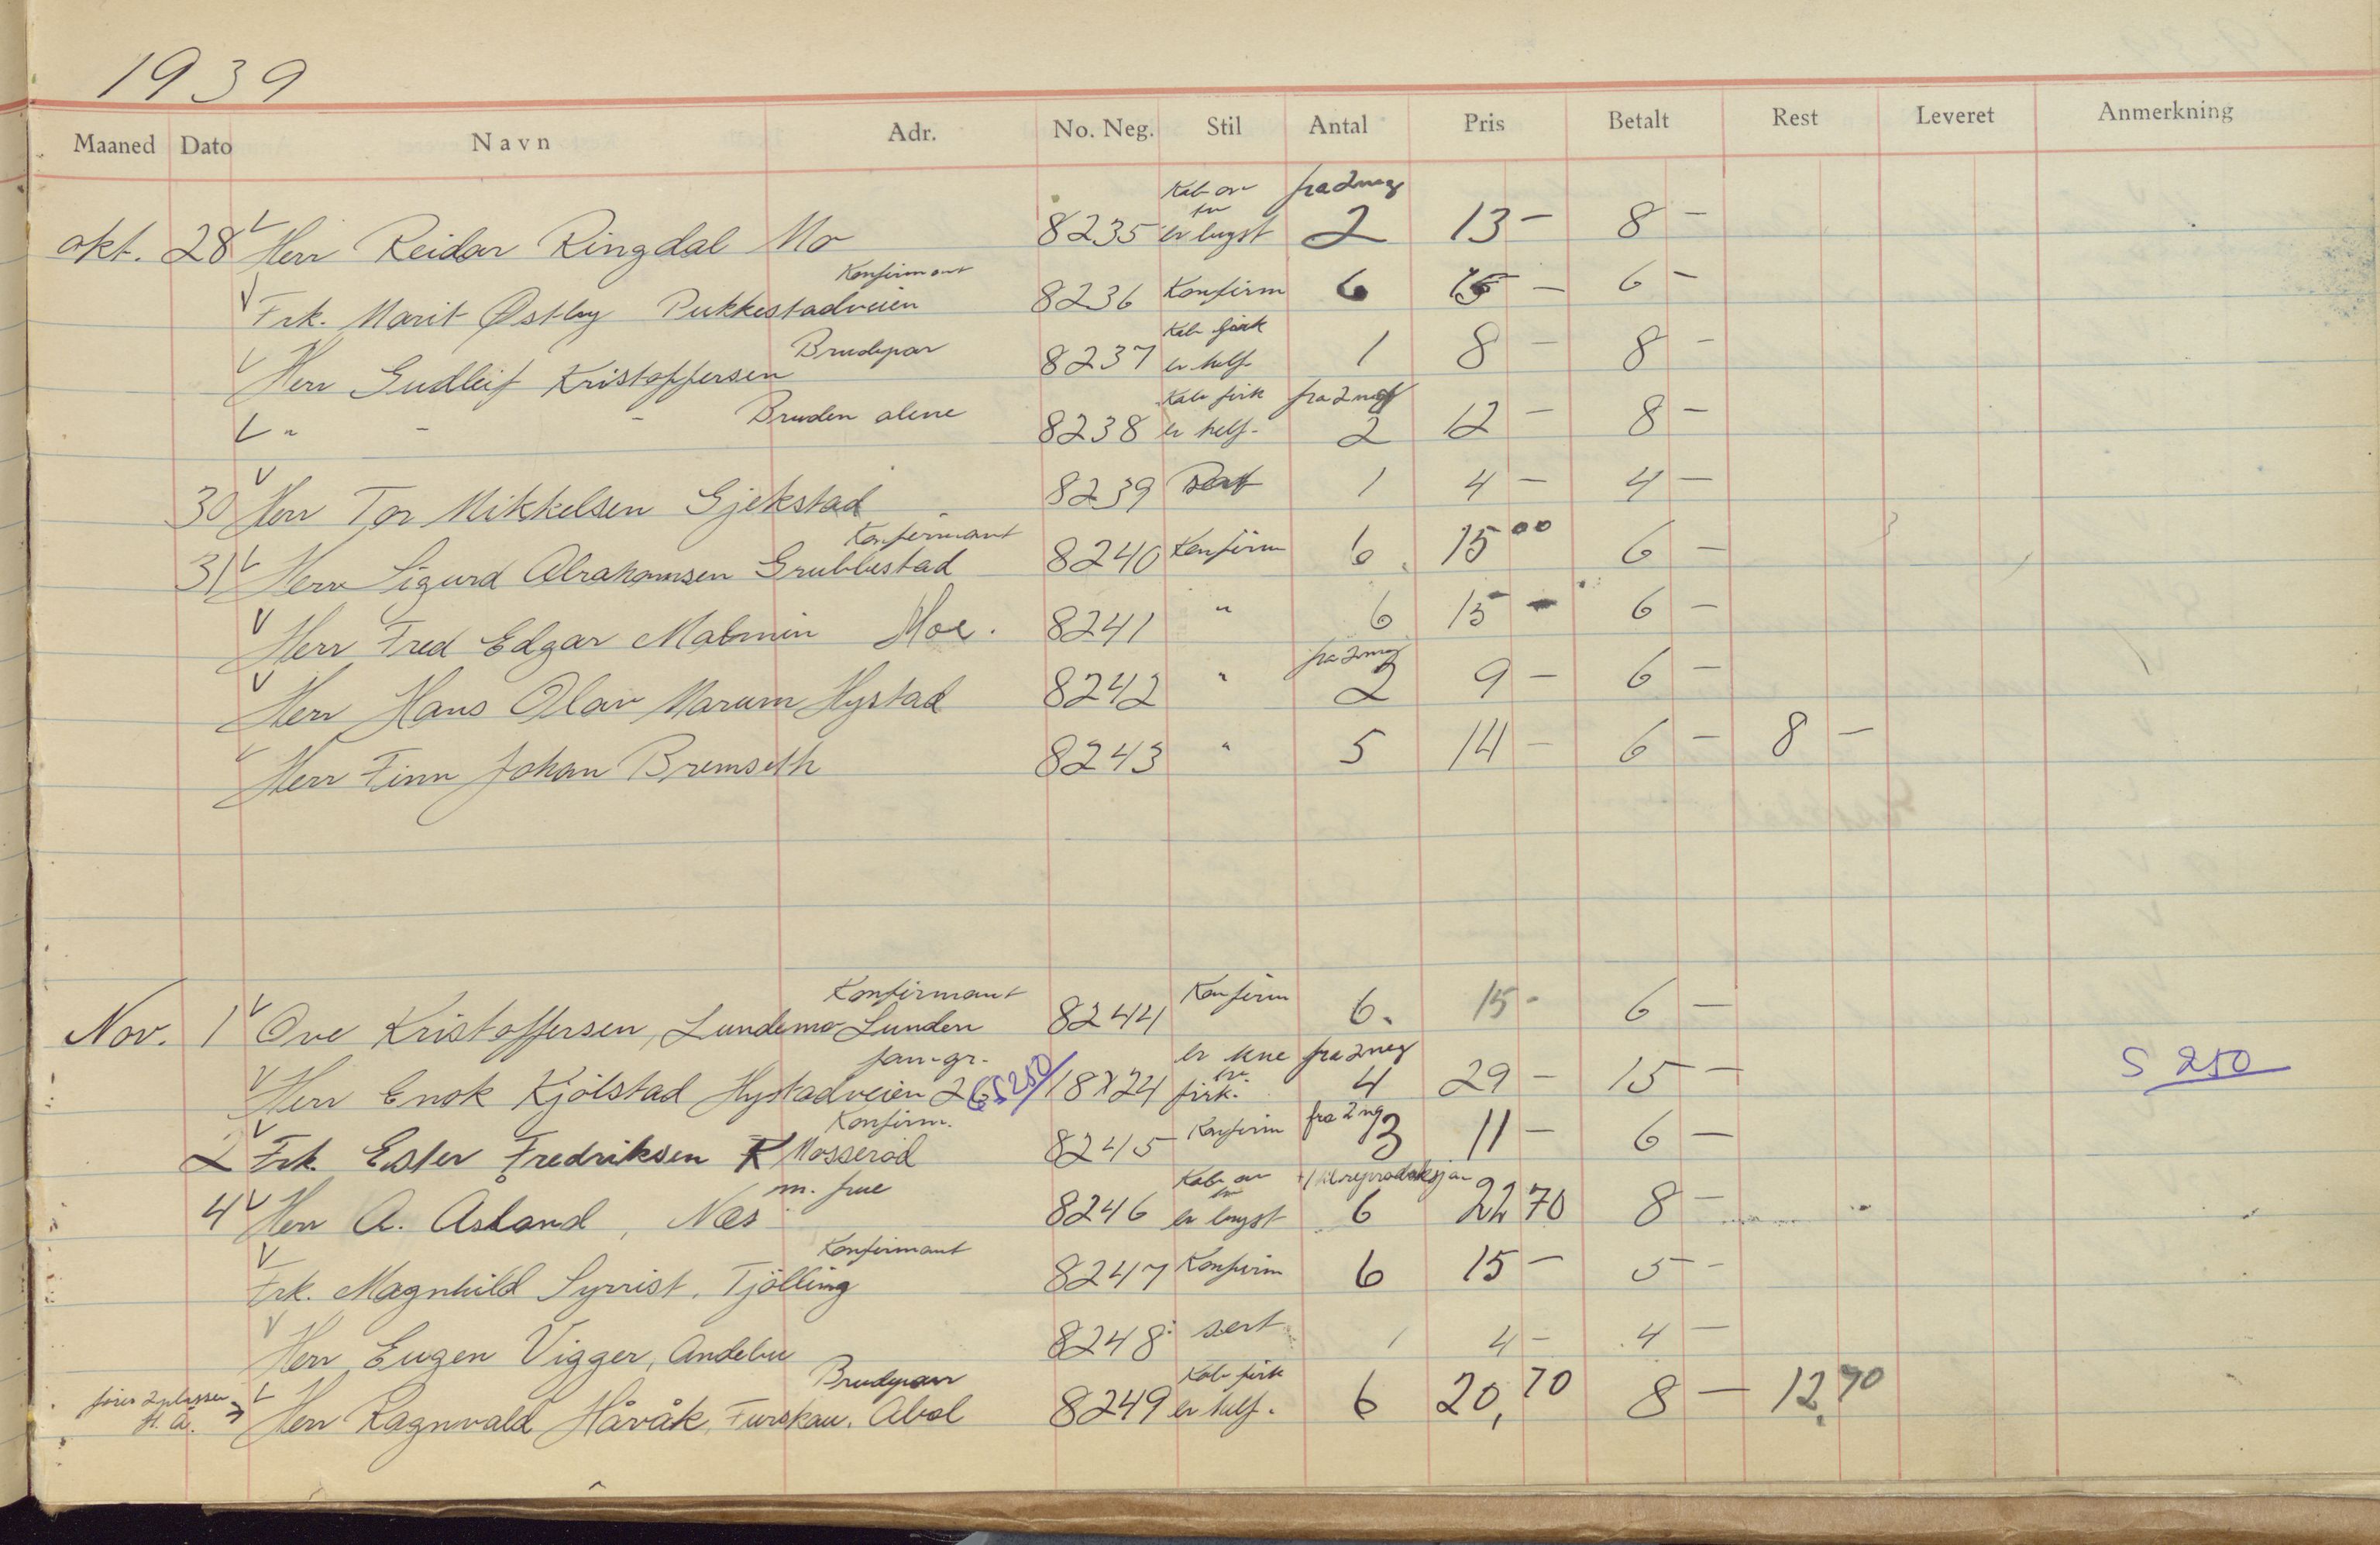 1939
Maaned Dato Navn Adr. No. Neg. Stil Antal Pris Betalt Rest Leveret Anmerkning
Kab fra 2 neg
okt. 28 Herr Reidar Ringdal Mo 8235 2 13 - 8 -
Konfirmant
Frk. Marit Østby Pukkestadveien 8236 Konfirm 6 15 - 6 -
Brudepar Kab
Herr Gudleif Kristoffersen 8237 er helf. 1 8 - 8 -
Kab fra 2 neg
" - - Bruden alene 8238 er helf. 2 12 - 8 -
30 Herr Tor Mikkelsen Gjekstad 8239 1 4 - 4 -
Konfirmant
31 Herr Sigurd Abrahamsen Grubbestad 8240 Konfirm 6 15 00 6 -
Herr Fred Edgar Malmin Moe. 8241 " 6 15 - 6 -
fra 2 neg
Herr Hans Olav Marum Hystad 8242 " 2 9 - 6 -
Herr Finn Johan Bremseth 8243 " 5 14 - 6 - 8 -
Konfirmant Konfirm
Nov. 1 Ove Kristoffersen, Lundemo Lunden 8244 6. 15 - 6 -
fam-gr. fra 2 neg
Herr Enok Kjölstad Hystadveien 26 S250/18x24 4 29 - 15 - S 250
Konfirm.
2 Frk. Ester Fredriksen Mosseröd 8245 Konfirm fra 2 ng 3 11 - 6 -
m. frue Kab + 1 til reproduksjon
4 Herr A. Åsland, Nes 8246 6 22 70 8 -
Konfirmant
Frk. Magnhild Syrrist, Tjölling 8247 Konfirm 6 15 - 5 -
Herr Eugen Vigger, Andebu 8248 sert 1 4 - 4 -
Brudepar Kab
H. Å. → Herr Ragnvald Håvåk, 8249 er helf. 6 20,70 8 - 12,70